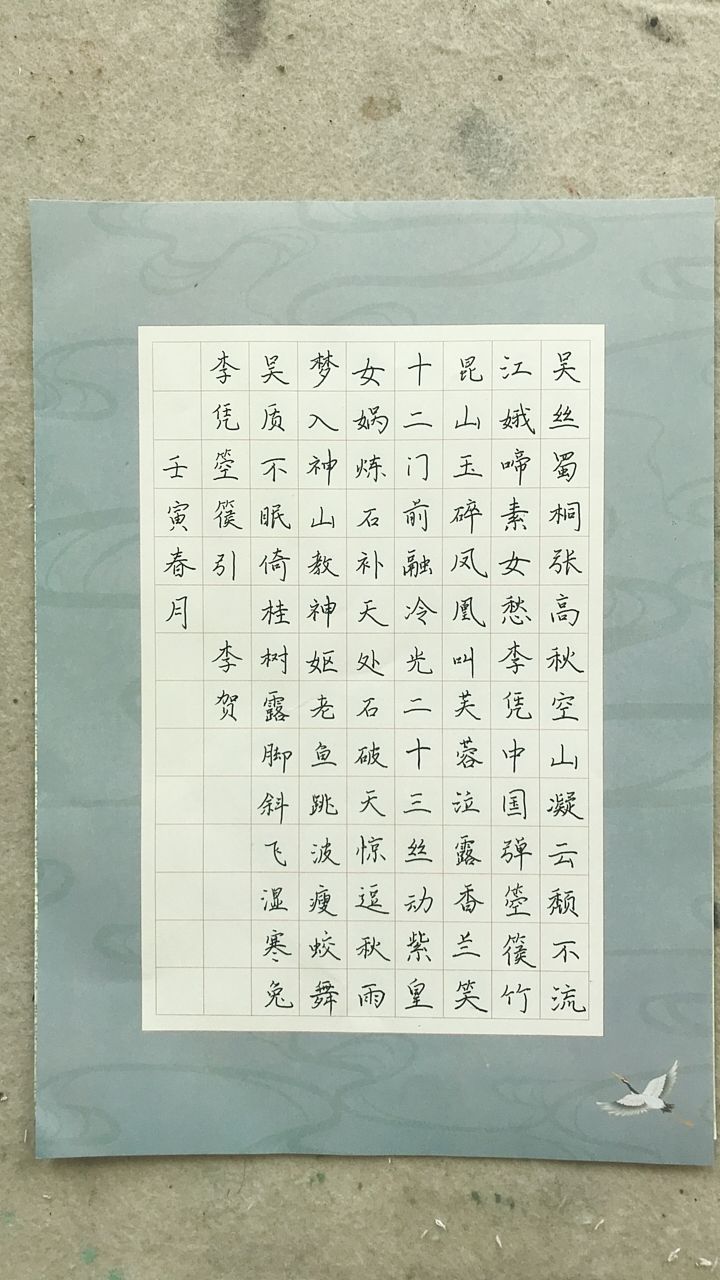 吴丝蜀桐张高秋空山凝云颓不流
江娥啼素女愁李凭中国弹箜篌竹
昆山玉碎凤凰叫芙蓉泣露香兰笑
十二门前融冷光二十三丝动紫皇
女娲炼石补天处石破天惊逗秋雨
梦入神山教神妪老鱼跳波瘦蛟舞
吴质不眠倚桂树露脚斜飞湿寒兔
李凭箜篌引 李贺
壬寅春月